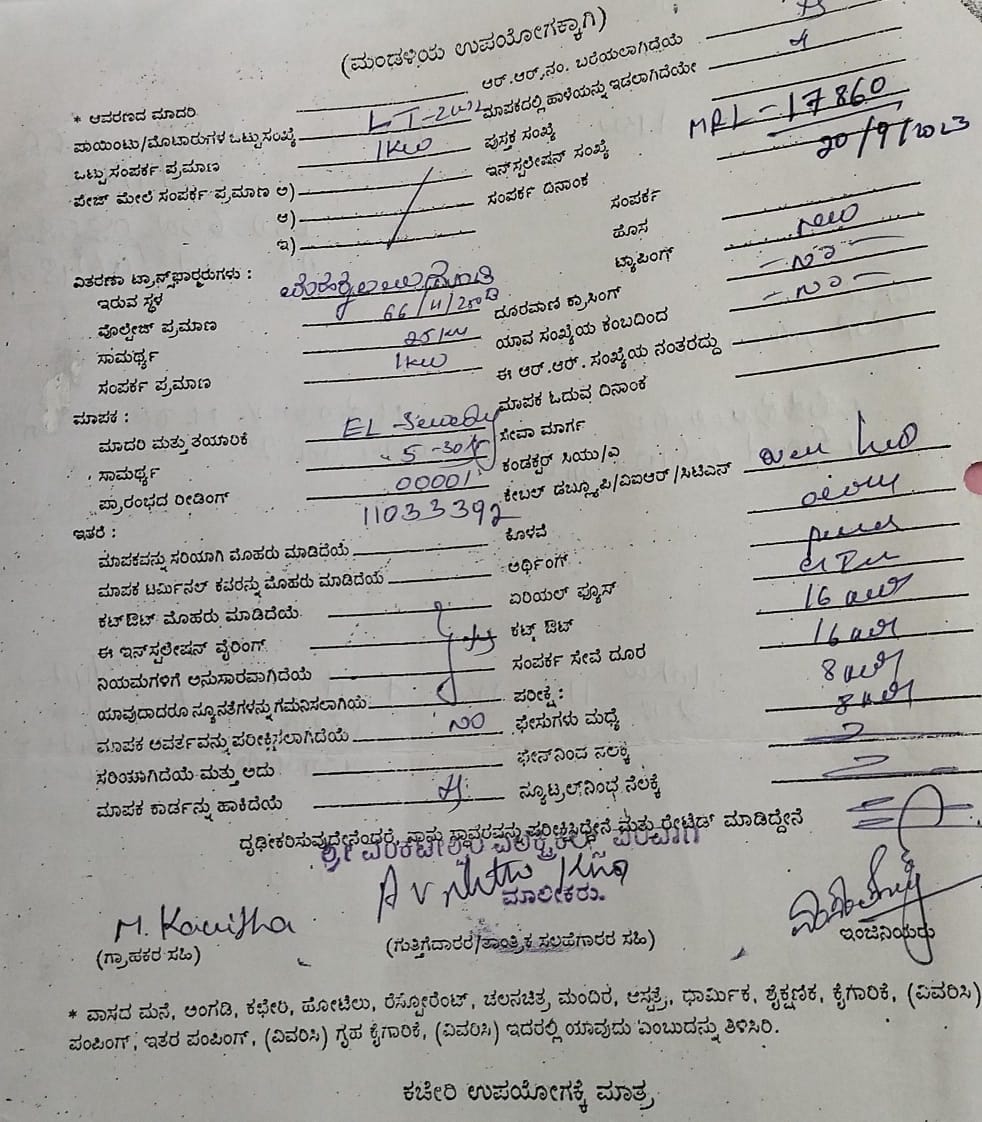 (ಮಂಡಳಿಯ ಉಪಯೋಗಕ್ಕಾಗಿ)
* ಆವರಣದ ಮಾದರಿ
ಆರ್.ಆರ್.ನಂ. ಬರೆಯಲಾಗಿದೆಯೆ
ಪಾಯಿಂಟು/ಮೋಟಾರುಗಳ ಒಟ್ಟು ಸಂಖ್ಯೆ
ಮಾಪಕದಲ್ಲಿ ಹಾಳೆಯನ್ನು ಇಡಲಾಗಿದೆಯೇ
ಒಟ್ಟು ಸಂಪರ್ಕ ಪ್ರಮಾಣ 1KW ಪುಸ್ತಕ ಸಂಖ್ಯೆ
ಪೇಜ್ ಮೇಲೆ ಸಂಪರ್ಕ ಪ್ರಮಾಣ ಅ) ಇನ್‌ಸ್ಟಲೇಷನ್ ಸಂಖ್ಯೆ MRL-17860
ಆ) ಸಂಪರ್ಕ ದಿನಾಂಕ 20/9/2023
ಇ) ಸಂಪರ್ಕ
ವಿತರಣಾ ಟ್ರಾನ್ಸ್‌ಫಾರ್ಮರುಗಳು : ಹೊಸ New
ಇರುವ ಸ್ಥಳ ಟ್ಯಾಪಿಂಗ್ - No -
ವೊಲ್ಟೇಜ್ ಪ್ರಮಾಣ ದೂರವಾಣಿ ಕ್ರಾಸಿಂಗ್ - No -
ಸಾಮರ್ಥ್ಯ ಯಾವ ಸಂಖ್ಯೆಯ ಕಂಬದಿಂದ
ಸಂಪರ್ಕ ಪ್ರಮಾಣ 1KW ಈ ಆರ್.ಆರ್. ಸಂಖ್ಯೆಯ ನಂತರದ್ದು
ಮಾಪಕ : ಮಾಪಕ ಓದುವ ದಿನಾಂಕ
ಮಾದರಿ ಮತ್ತು ತಯಾರಿಕೆ EL-Sewedy ಸೇವಾ ಮಾರ್ಗ
ಸಾಮರ್ಥ್ಯ 5-30 ಕಂಡಕ್ಟರ್ ಸಿಯು/ಎ
ಪ್ರಾರಂಭದ ರೀಡಿಂಗ್ 00001 ಕೇಬಲ್ ಡಬ್ಲ್ಯೂಪಿ/ವಿಐಆರ್/ಸಿಟಿಎಸ್
ಇತರೆ : 11033392 ಕೊಳವೆ
ಮಾಪಕವನ್ನು ಸರಿಯಾಗಿ ಮೊಹರು ಮಾಡಿದೆಯೆ ಅರ್ಥಿಂಗ್
ಮಾಪಕ ಟರ್ಮಿನಲ್ ಕವರನ್ನು ಮೊಹರು ಮಾಡಿದೆಯೆ ಏರಿಯಲ್ ಫ್ಯೂಸ್
ಕಟ್‌ಔಟ್ ಮೊಹರು ಮಾಡಿದೆಯೆ ಕಟ್ಟ್ ಔಟ್ 16
ಈ ಇನ್‌ಸ್ಟಲೇಷನ್ ವೈರಿಂಗ್ ಸಂಪರ್ಕ ಸೇವೆ ದೂರ 16
ನಿಯಮಗಳಿಗೆ ಅನುಸಾರವಾಗಿದೆಯೆ ಪರೀಕ್ಷೆ : 8
ಯಾವುದಾದರೂ ನ್ಯೂನತೆಗಳನ್ನು ಗಮನಿಸಲಾಗಿಯೆ ಫೇಸುಗಳು ಮಧ್ಯೆ 8
ಮಾಪಕ ಆವರ್ತವನ್ನು ಪರೀಕ್ಷಿಸಲಾಗಿದೆಯೆ NO ಫೇಸ್‌ನಿಂದ ನೆಲಕ್ಕೆ
ಸರಿಯಾಗಿದೆಯೆ ಮತ್ತು ಅದು ನ್ಯೂಟ್ರಲ್‌ನಿಂಧ ನೆಲಕ್ಕೆ
ಮಾಪಕ ಕಾರ್ಡನ್ನು ಹಾಕಿದೆಯೆ
ದೃಢೀಕರಿಸುವುದೇನೆಂದರೆ, ನಾನು ಸ್ಥಾವರವನ್ನು ಪರೀಕ್ಷಿಸಿದ್ದೇನೆ ಮತ್ತು ರೇಟೆಡ್ ಮಾಡಿದ್ದೇನೆ
ಮಾಲೀಕರು.
M. Kavitha
(ಗ್ರಾಹಕರ ಸಹಿ) (ಗುತ್ತಿಗೆದಾರರ/ತಾಂತ್ರಿಕ ಸಲಹೆಗಾರರ ಸಹಿ) ಇಂಜಿನಿಯರು
* ವಾಸದ ಮನೆ, ಅಂಗಡಿ, ಕಛೇರಿ, ಹೋಟೆಲು, ರೆಸ್ಟೋರೆಂಟ್, ಚಲನಚಿತ್ರ ಮಂದಿರ, ಆಸ್ಪತ್ರೆ, ಧಾರ್ಮಿಕ, ಶೈಕ್ಷಣಿಕ, ಕೈಗಾರಿಕೆ, (ವಿವರಿಸಿ)
ಪಂಪಿಂಗ್, ಇತರ ಪಂಪಿಂಗ್, (ವಿವರಿಸಿ) ಗೃಹ ಕೈಗಾರಿಕೆ, (ವಿವರಿಸಿ) ಇದರಲ್ಲಿ ಯಾವುದು ಎಂಬುದನ್ನು ತಿಳಿಸಿರಿ.
ಕಚೇರಿ ಉಪಯೋಗಕ್ಕೆ ಮಾತ್ರ